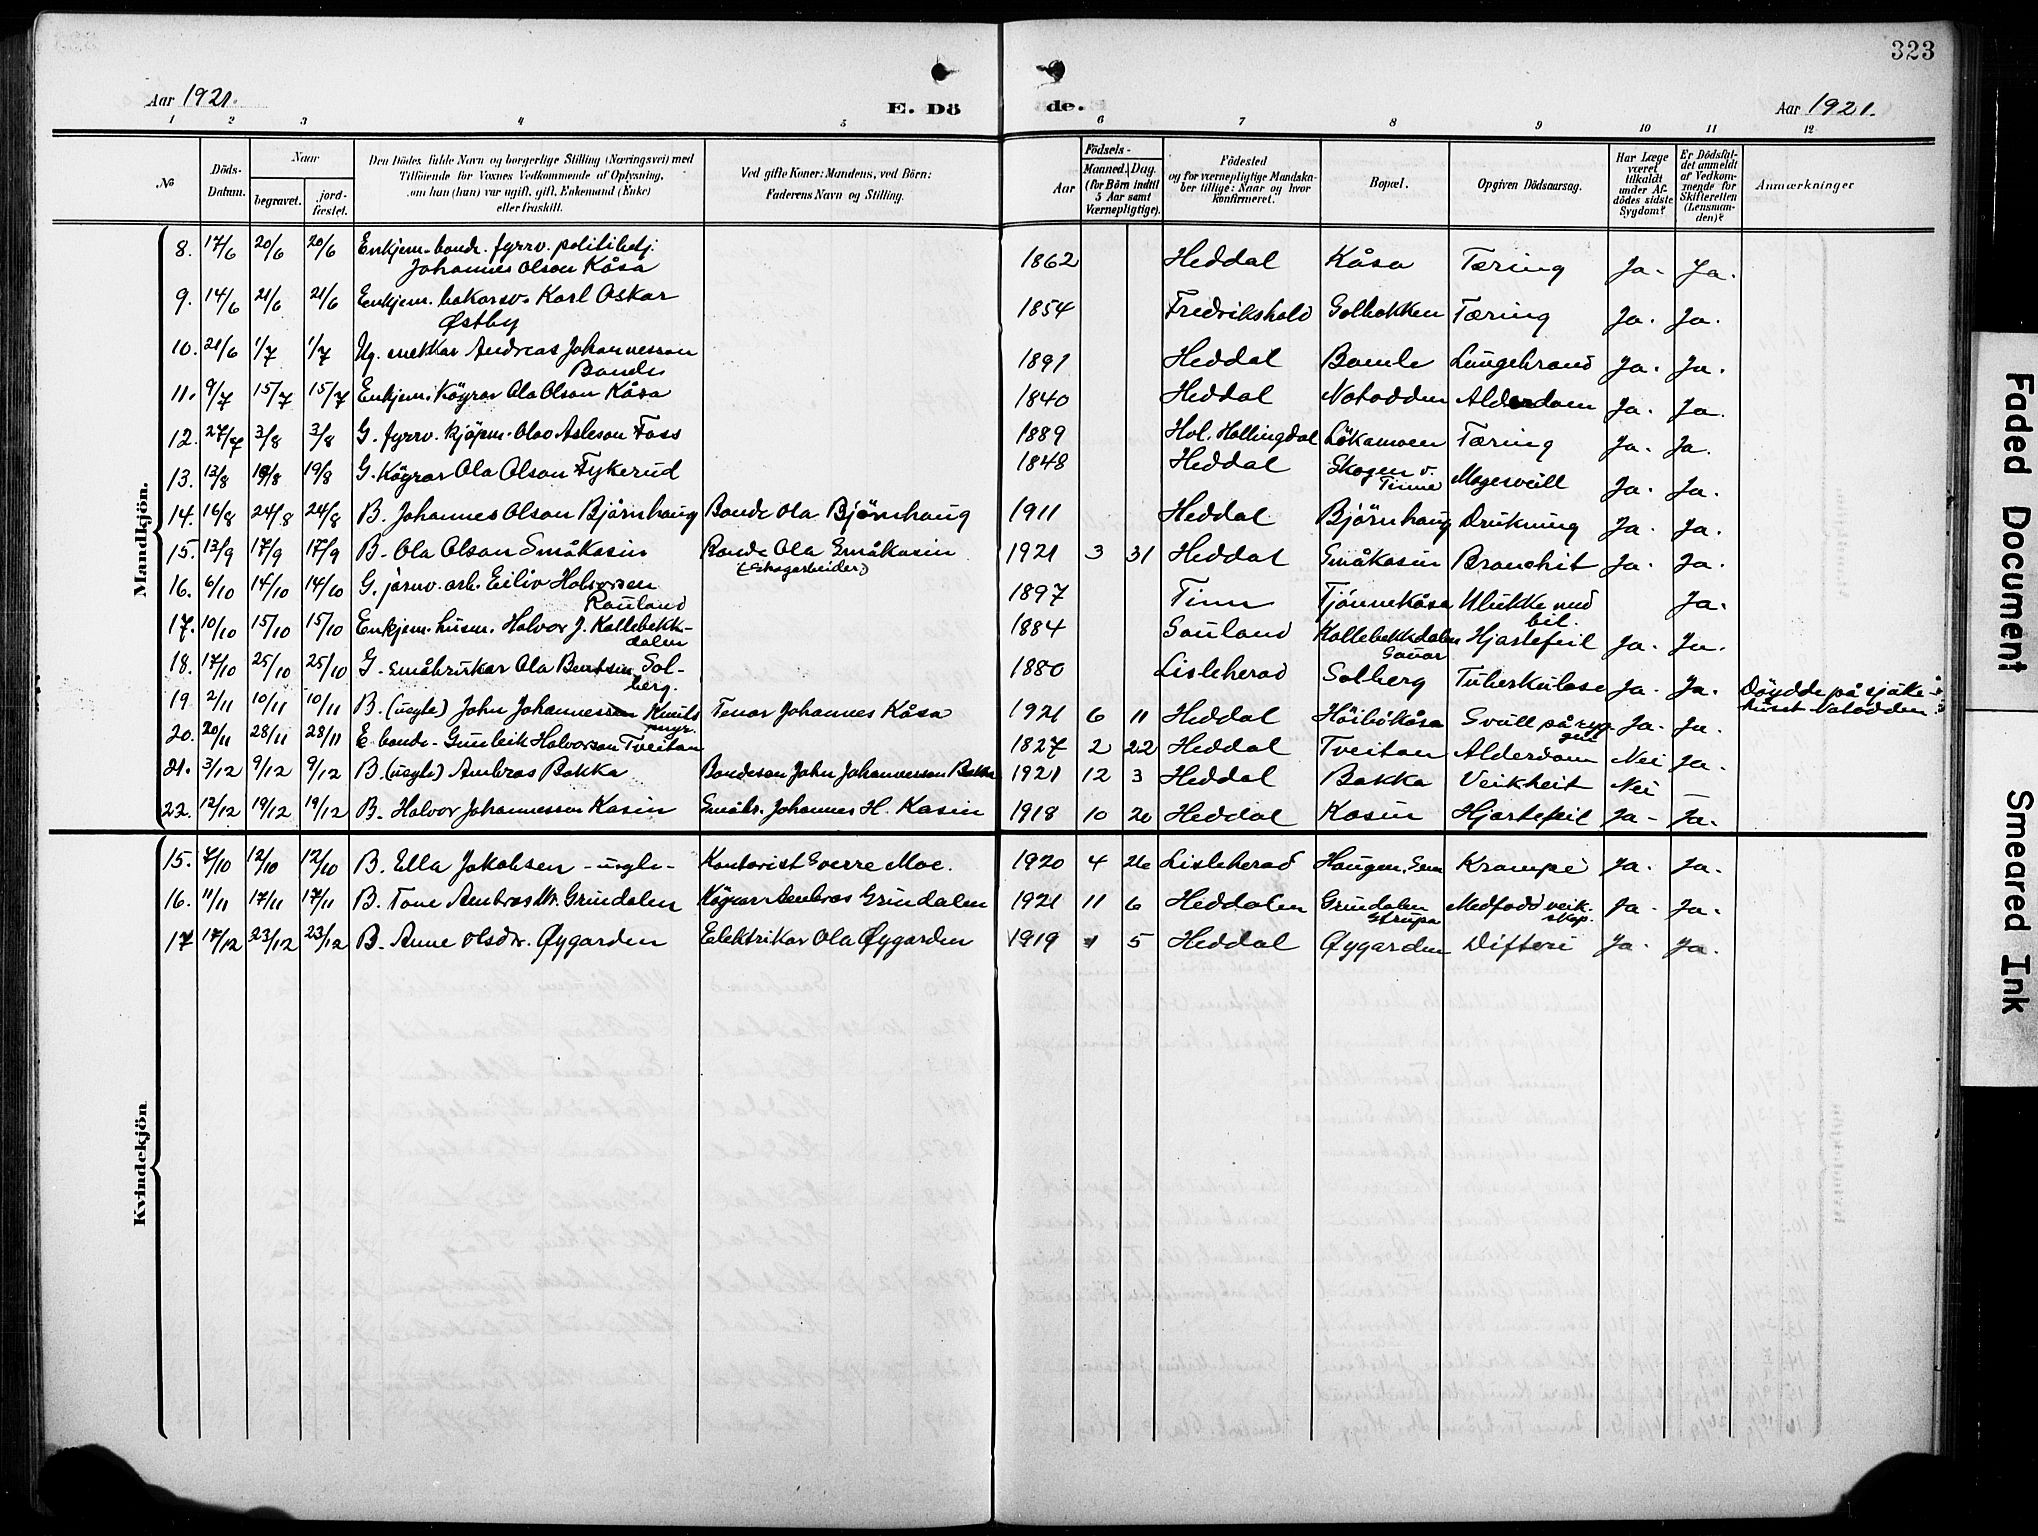 323
Aar 1921. E. Dö
de. Aar 1921.
1 2 3 4 5 6 7 8 9 10 11 12
No
Döds-Datum.
Naar
begravet.
jord-fæstet.
Den Dödes fulde Navn og borgerlige Stilling (Næringsvei) med
Tilföiende for Voxnes Vedkommende af Oplysning,
om han (hun) var ugift, gift, Enkemand (Enke)
eller fraskilt.
Ved gifte Koner: Mandens, ved Börn:
Faderens Navn og Stilling.
Födsels-
Aar
Maaned. Dag.
(for Börn indtil
5 Aar samt
Værnepligtige).
Födested
og for værnepligtige Mandska-
ber tillige: Naar og hvor
konfirmeret.
Bopæl.
Opgiven Dödsaarsag.
Har Læge
været
tilkaldt
under Af-
dödes sidste
Sygdom?
Er Dödsfal-
det anmeldt
af Vedkom-
mende for
Skifteretten
(Lensman-
den)?
Anmærkninger
Mandkjön.
8. 17/6 20/6 20/6 Enkjem. bonde. fyrrv. politibetj. Johannes Olson Kåsa 1862 Heddal Kåsa Tæring Ja. Ja.
9. 14/6 21/6 21/6 Enkjem. bakarsv. Karl Oskar Østby 1854 Fredrikshald Golbekken Tæring Ja. Ja.
10. 21/6 1/7 1/7 Ug. snekkar Andreas Johannesson 1891 Heddal Bamle Lungebrand Ja. Ja.
11. 9/7 15/7 15/7 Enkjem. Kögrar Ola Olson Kåsa 1840 Heddal Notodden Alderdom Ja. Ja.
12. 27/7 3/8 3/8 G. fyrrv. kjöpm. Olav Asleson Foss 1889 Hol. Hallingdal Lökamoen Tæring Ja. Ja.
13. 13/8 19/8 19/8 G. Kögrar Ola Olson Fykerud 1848 Heddal Skogen v. Tinne Magesvull Ja. Ja.
14. 16/8 24/8 24/8 B. Johannes Olson Bjørnhaug Bonde Ola Bjørnhaug 1911 Heddal Bjørnhaug Drukning Ja. Ja.
15. 13/9 17/9 17/9 B. Ola Olson Småkasin Bonde Ola Småkasin (Skogarbeider) 1921 3 31 Heddal Småkasin Bronchit Ja. Ja.
16. 6/10 14/10 14/10 G. jarnv. arb. Eiliv Halvorsen Rauland 1897 Tinn Tjønnekåsa Ulukke med bil. Ja.
17. 10/10 15/10 15/10 Enkjem. husm. Halvor J. Kallebekkdalen 1884 Sauland Kallebekkdalen Sauar Hjartefeil Ja. Ja.
18. 17/10 25/10 25/10 G. småbrukar Ola Bentsen Solberg. 1880 Lisleherad Solberg Tuberkulose Ja. Ja. Döydde på sjuke-huset Notodden
19. 2/11 10/11 10/11 B. (uegte) John Johannesson Knutsmyr. Tenar Johannes Kåsa 1921 6 11 Heddal Höibökåsa Svull på ryggen Ja. Ja.
20. 20/11 28/11 28/11 E. bonde. Gunleik Halvorson Tveitan 1827 2 22 Heddal Tveitan Alderdom Nei Ja.
21. 3/12 9/12 9/12 B. (uegte) Ambros Bakka Bondeson John Johannesson Bakka 1921 12 3 Heddal Bakka Veikheit Nei —
22. 12/12 19/12 19/12 B. Halvor Johannesson Kasin Småbr. Johannes H. Kasin 1918 10 20 Heddal Kasin Hjartefeil Ja. Ja.
Kvindekjön
15. 7/10 12/10 12/10 B. Ella Jakobsen - uegte - Kontorist Sverre Moe. 1920 4 26 Lisleherad Haugen, Sem Krampe Ja. Ja.
16. 11/11 17/11 17/11 B. Tone Ambrosdtr. Grindalen Kögrar Ambros Grindalen 1921 11 6 Heddalen Grindalen Medfødd veikskap. Ja. Ja.
17 17/12 23/12 23/12 B. Anne Olsdtr. Øygarden Elektrikar Ola Øygarden 1919 1 5 Heddal Øygarden Difteri Ja. Ja.
Faded Document
Smeared Ink